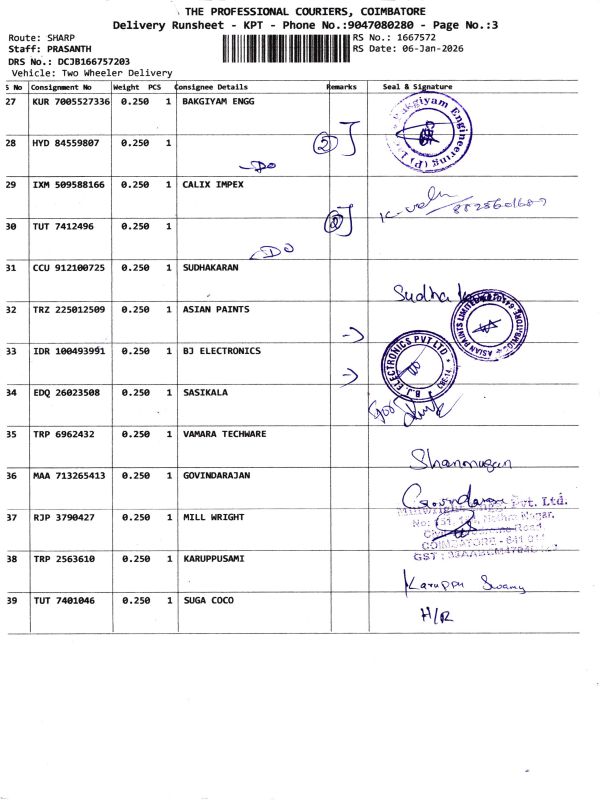 THE PROFESSIONAL COURIERS, COIMBATORE
Delivery Runsheet - KPT - Phone No.:9047080280 - Page No.:3
Route: SHARP
RS No.: 1667572
Staff: PRASANTH
RS Date: 06-Jan-2026
DRS No.: DCJB166757203
Vehicle: Two Wheeler Delivery
S No Consignment No Weight PCS Consignee Details Remarks Seal & Signature
27 KUR 7005527336 0.250 1 BAKGIYAM ENGG
Bakgiyam Engineering (P)
28 HYD 84559807 0.250 1
2
DO
29 IXM 509588166 0.250 1 CALIX IMPEX
30 TUT 7412496 0.250 1
2
DO
31 CCU 912100725 0.250 1 SUDHAKARAN
Sudha
32 TRZ 225012509 0.250 1 ASIAN PAINTS
ASIAN PAINTS LIMITED
33 IDR 100493991 0.250 1 BJ ELECTRONICS
B.J. ELECTRONICS PVT LTD
CBE-14
34 EDQ 26023508 0.250 1 SASIKALA
35 TRP 6962432 0.250 1 VAMARA TECHWARE
Shanmugan
36 MAA 713265413 0.250 1 GOVINDARAJAN
Govindaran
Pvt. Ltd.
37 RJP 3790427 0.250 1 MILL WRIGHT
Nagar,
Road
COIMBATORE - 641 011
38 TRP 2563610 0.250 1 KARUPPUSAMI
Karuppu Swamy
39 TUT 7401046 0.250 1 SUGA COCO
H/R